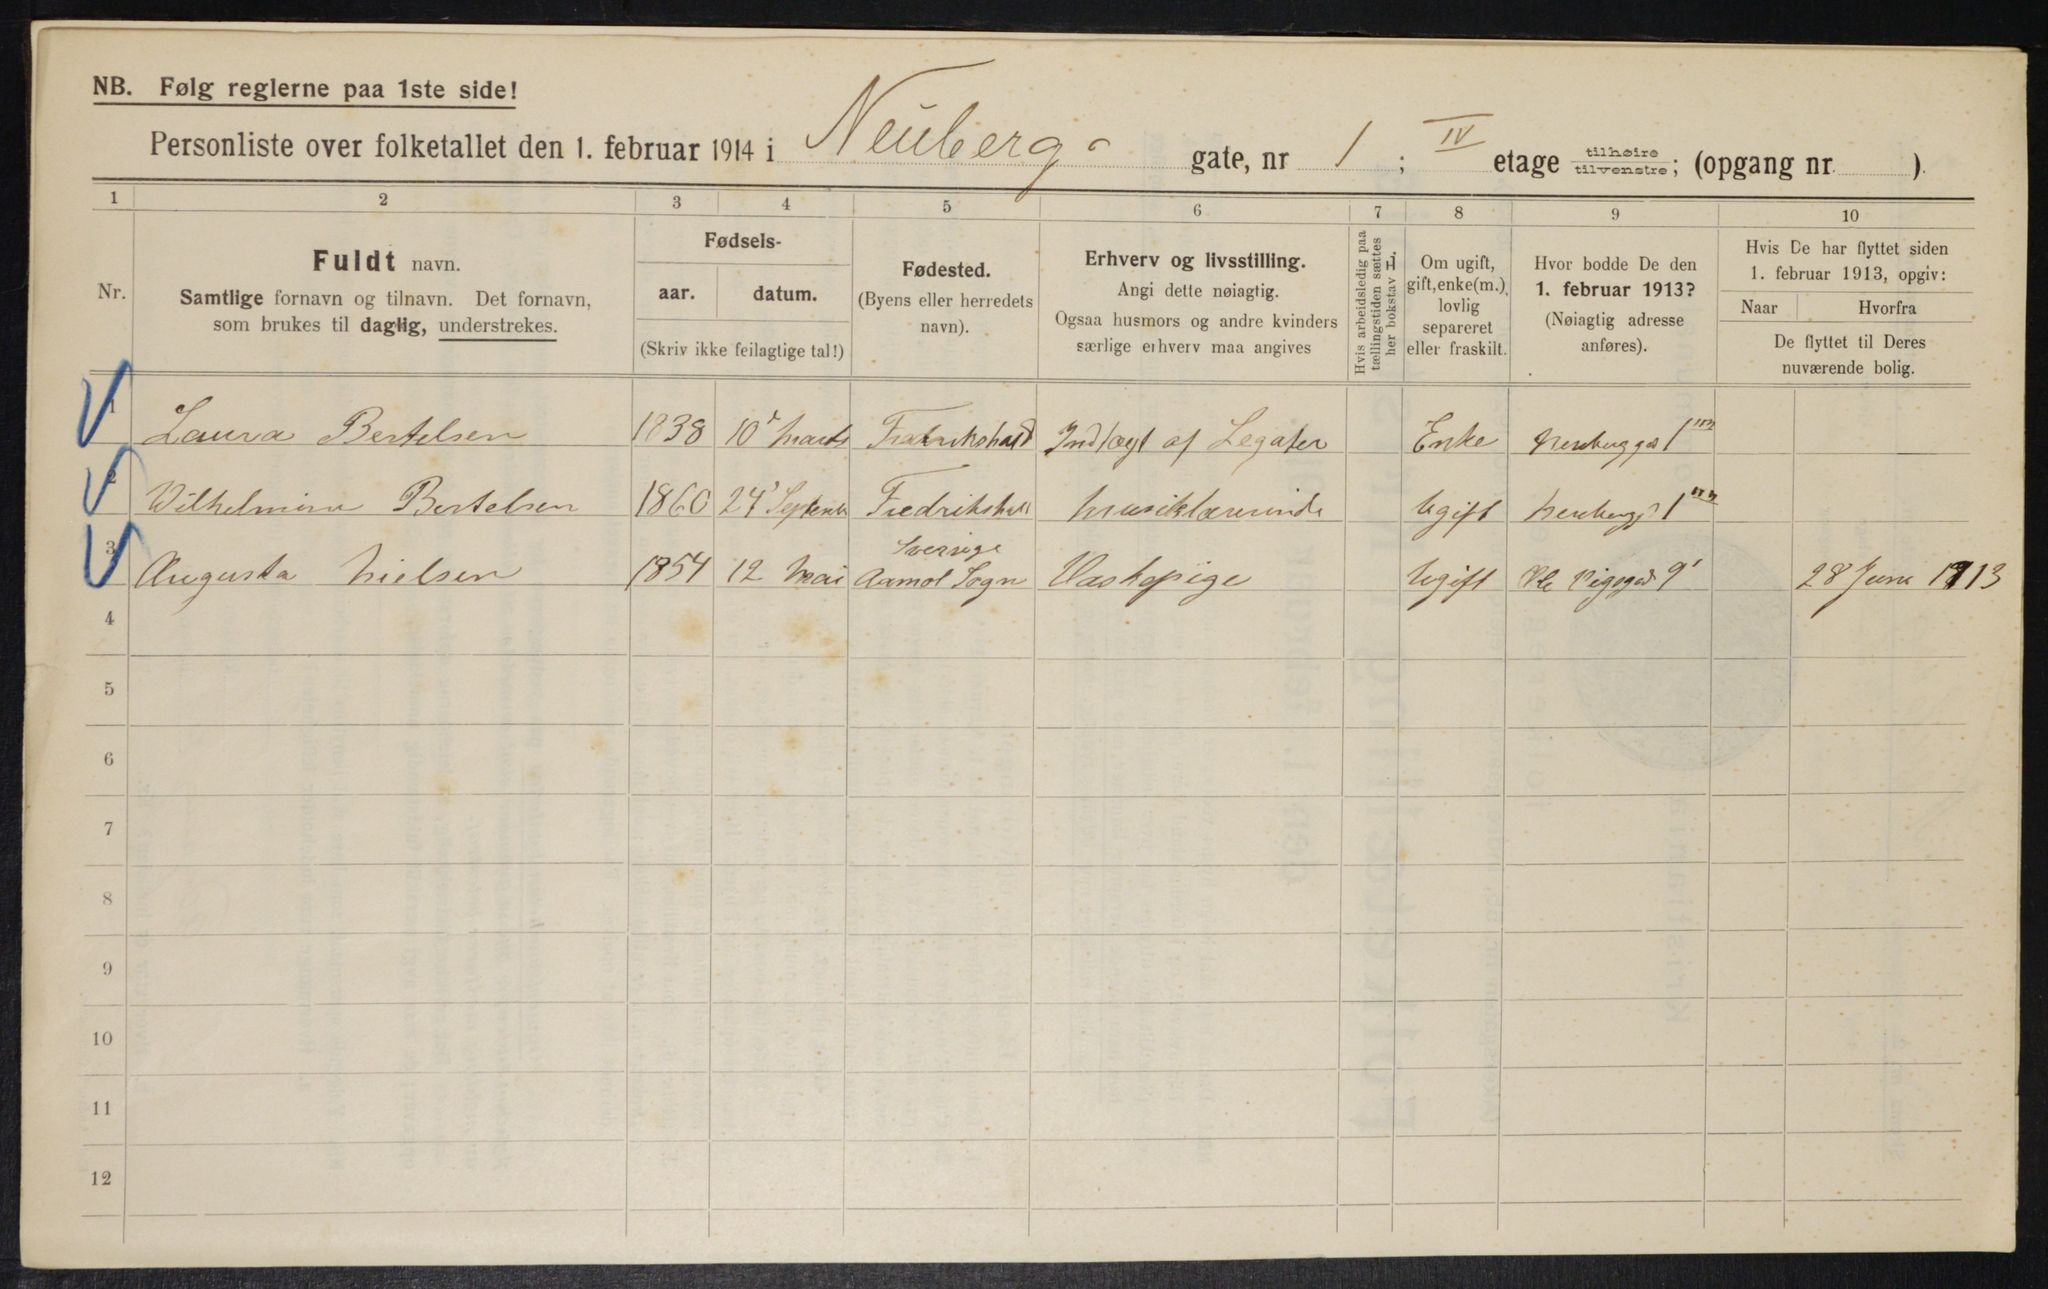 NB. Følg reglerne paa 1ste side!
Personliste over folketallet den 1. februar 1914 i Neuberg- gate, nr 1; IV etage tilhøire / tilvenstre; (opgang nr. ).
1 2 3 4 5 6 7 8 9 10
Nr.
Fuldt navn.
Samtlige fornavn og tilnavn. Det fornavn,
som brukes til daglig, understrekes.
Fødsels-
aar. datum.
(Skriv ikke feilagtige tal!)
Fødested.
(Byens eller herredets
navn).
Erhverv og livsstilling.
Angi dette nøiagtig.
Ogsaa husmors og andre kvinders
særlige erhverv maa angives
Hvis arbeidsledig paa
tællingstiden sættes
her bokstav L.
Om ugift,
gift, enke(m.),
lovlig
separeret
eller fraskilt.
Hvor bodde De den
1. februar 1913?
(Nøiagtig adresse
anføres).
Hvis De har flyttet siden
1. februar 1913, opgiv:
Naar Hvorfra
De flyttet til Deres
nuværende bolig.
1 Laura Bertelsen 1838 10 Marts Fredrikshald Indlagt af Legater Enke Neubergga 1
2 Wilhelmine Bertelsen 1860 24 September Fredrikshald Musiklærerinde Ugift Neubergg 1
Sverige
3 Augusta Nielsen 1854 12 Mai Aamol Sogn Vaskepige Ugift 9 28 Juni 1913
4
5
6
7
8
9
10
11
12